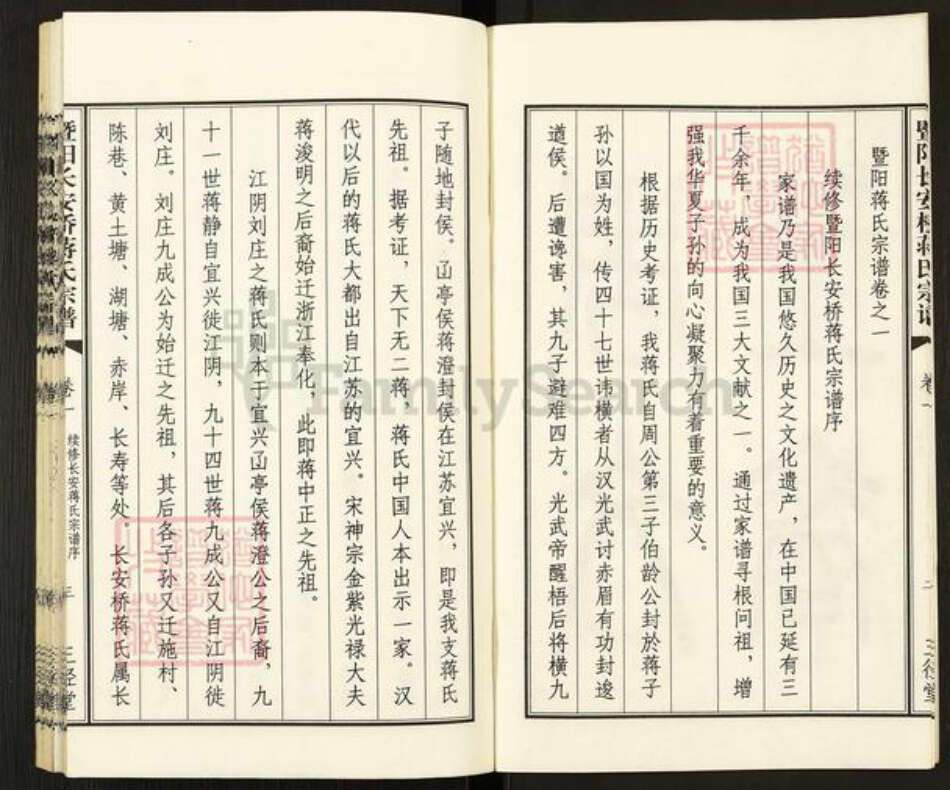 暨阳蒋氏宗谱卷之一
续修暨阳长安桥蒋氏宗谱序
家谱乃是我国悠久历史之文化遗产，在中国已延有三
千余年，成为我国三大文献之一。通过家谱寻根问祖，增
强我华夏子孙的向心凝聚力有着重要的意义。
根据历史考证，我蒋氏自周公第三子伯龄公封於蒋子
孙以国为姓，传四十七世讳横者从汉光武讨赤眉有功封逡
遒侯。后遭谗害，其九子避难四方。光武帝醒梧后将横九
子随地封侯。㓰亭侯蒋澄封侯在江苏宜兴，即是我支蒋氏
先祖。据考证，天下无二蒋，蒋氏中国人本出示一家。汉
代以后的蒋氏大都出自江苏的宜兴。宋神宗金紫光禄大夫
蒋浚明之后裔始迁浙江奉化，此即蒋中正之先祖。
江阴刘庄之蒋氏则本于宜兴㓰亭侯蒋澄公之后裔，九
十一世蒋静自宜兴徙江阴，九十四世蒋九成公又自江阴徙
刘庄。刘庄九成公为始迁之先祖，其后各子孙又迁施村、
陈巷、黄土塘、湖塘、赤岸、长寿等处。长安桥蒋氏属长
暨阳长安桥蒋氏宗谱
卷一
续修长安蒋氏宗谱序
三
三径堂
FamilySearch